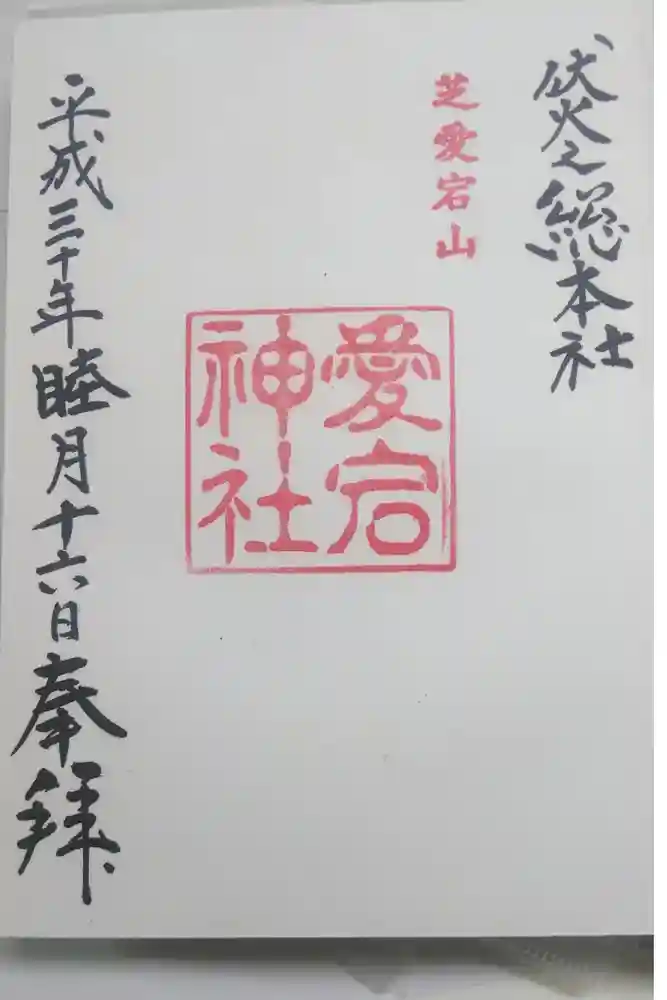 伏火之総本社
芝愛宕山
愛宕
神社
平成三十年睦月十六日奉拝